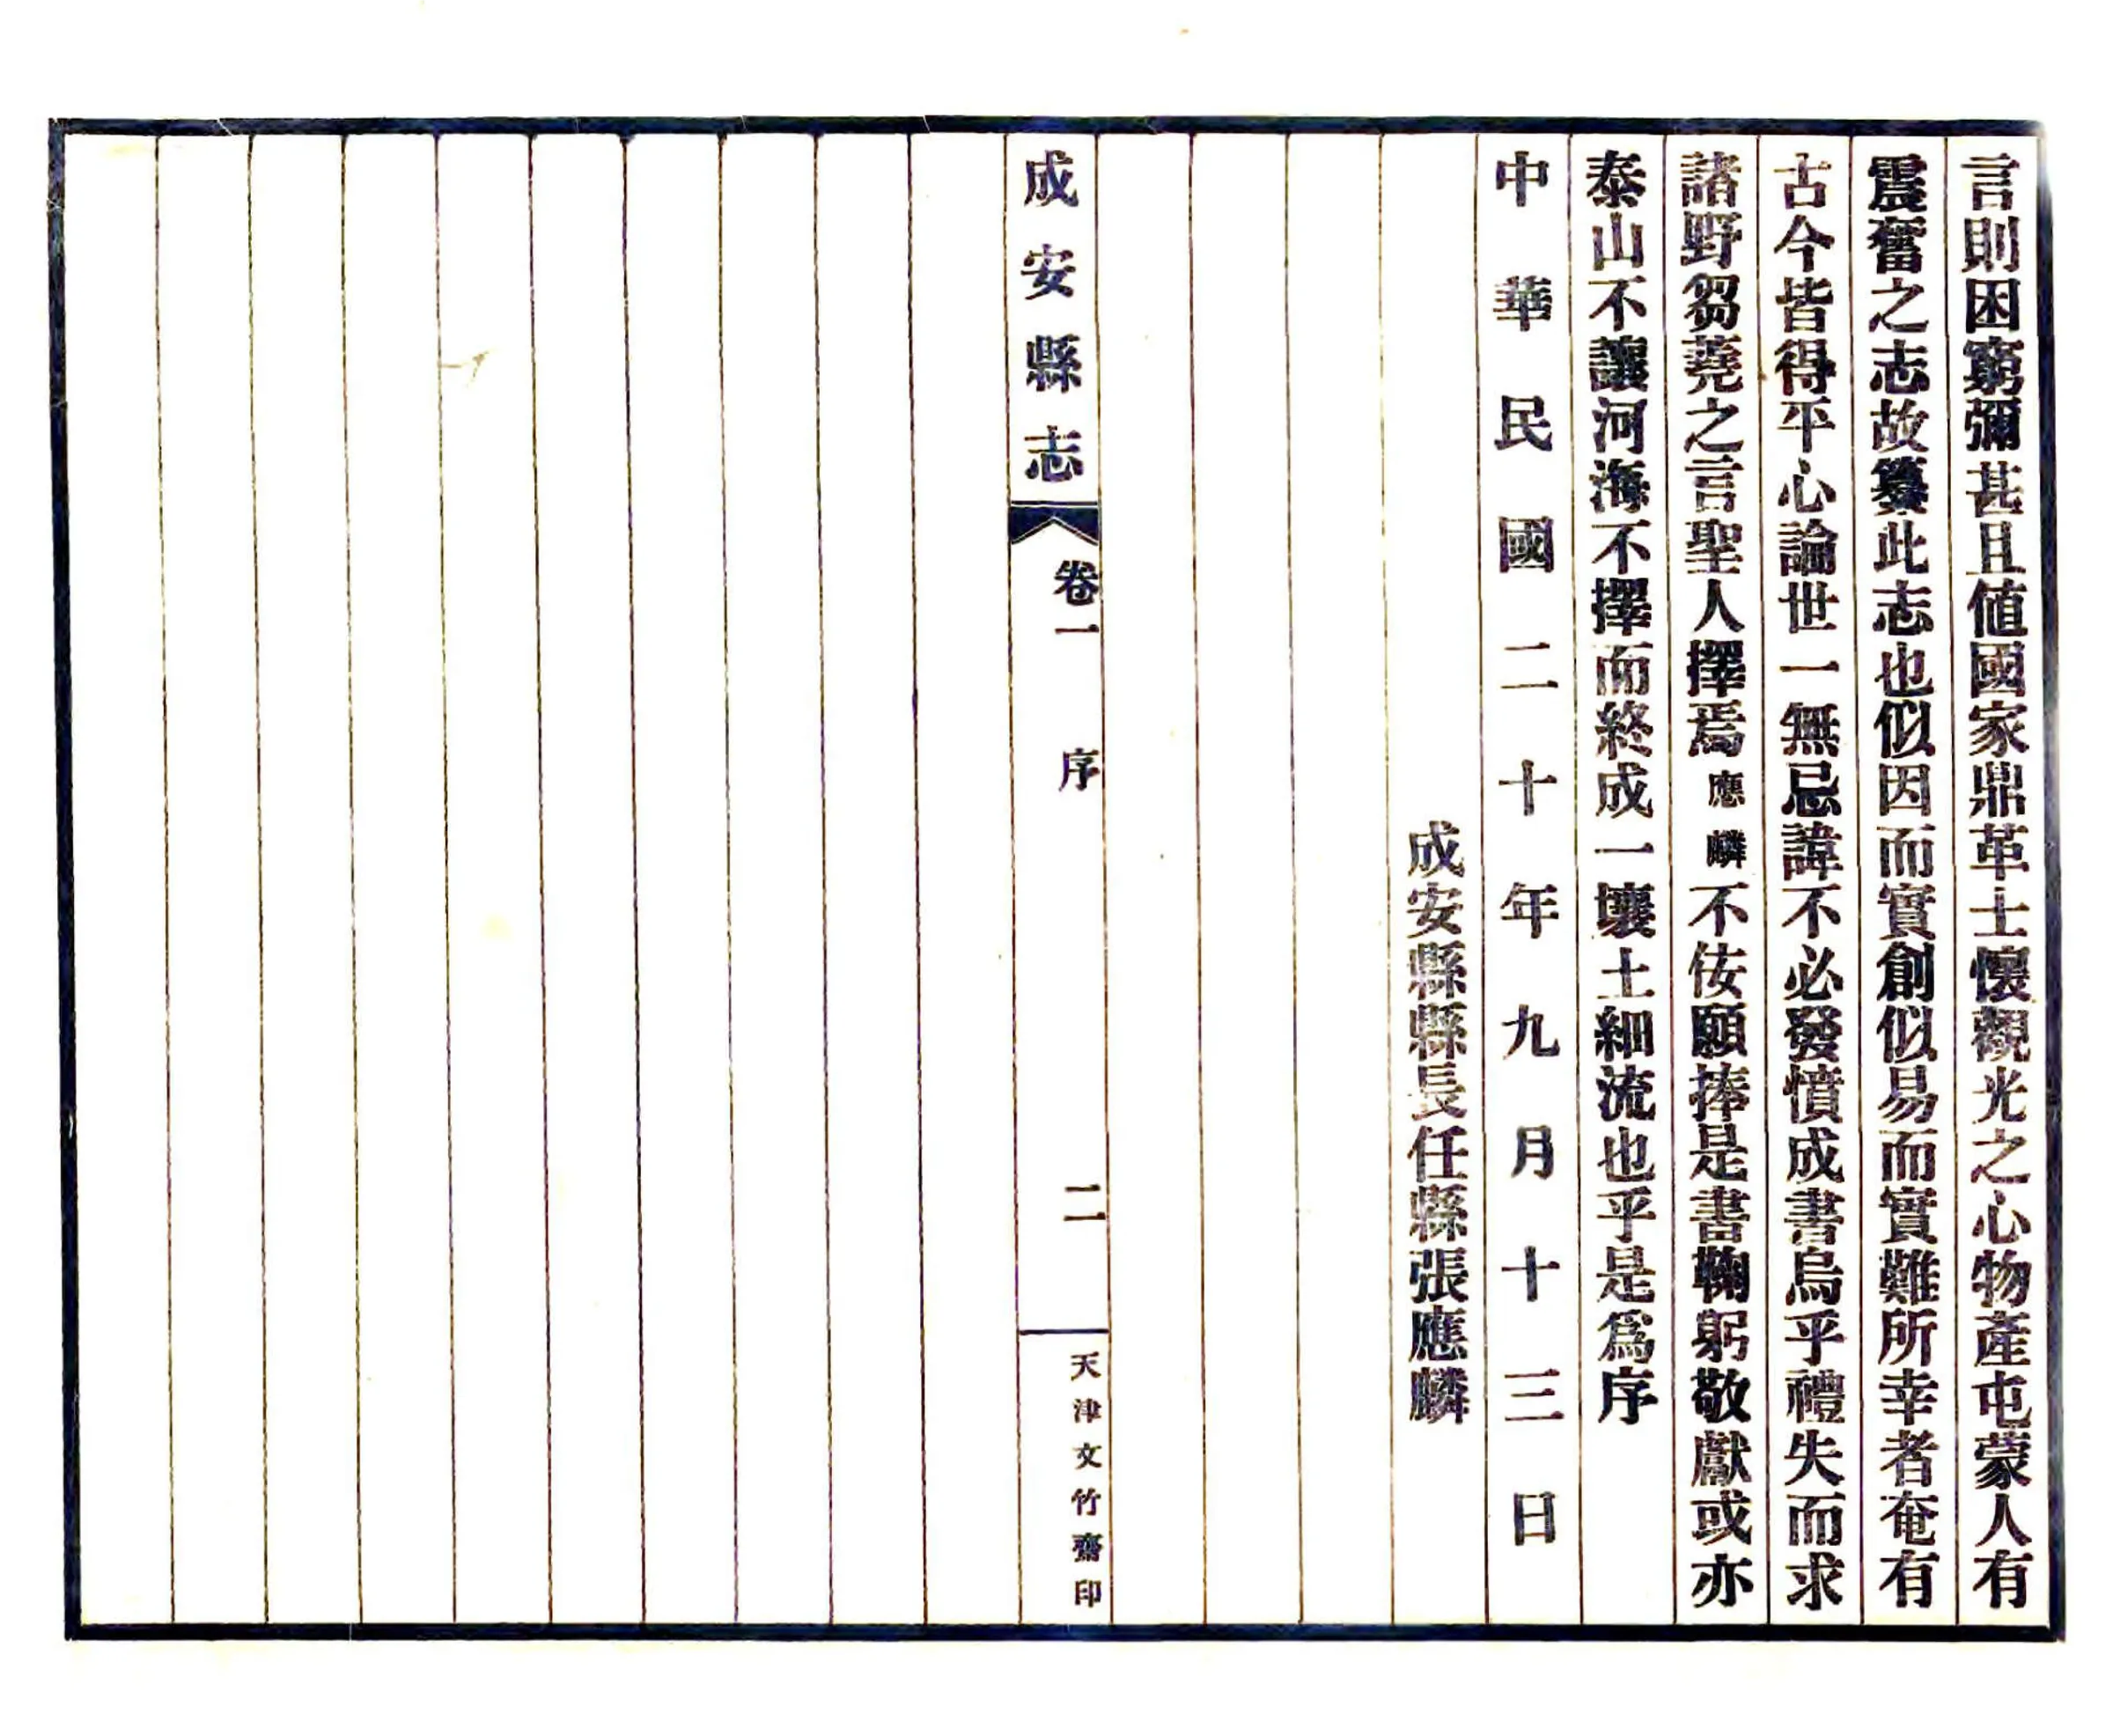 言則困窮彌甚且値國家鼎革士懷觀光之心物產屯蒙人有
震奮之志故纂此志也似因而實創似易而實難所幸者奄有
古今皆得平心論世一無忌諱不必發憤成書烏乎禮失而求
諸野芻蕘之言聖人擇焉應麟不侫願捧是書鞠躬敬獻或亦
泰山不讓河海不擇而終成一壤土細流也乎是爲序
中華民國二十年九月十三日
成安縣縣長任縣張應麟
成安縣志
卷一
序
二
天津文竹齋印